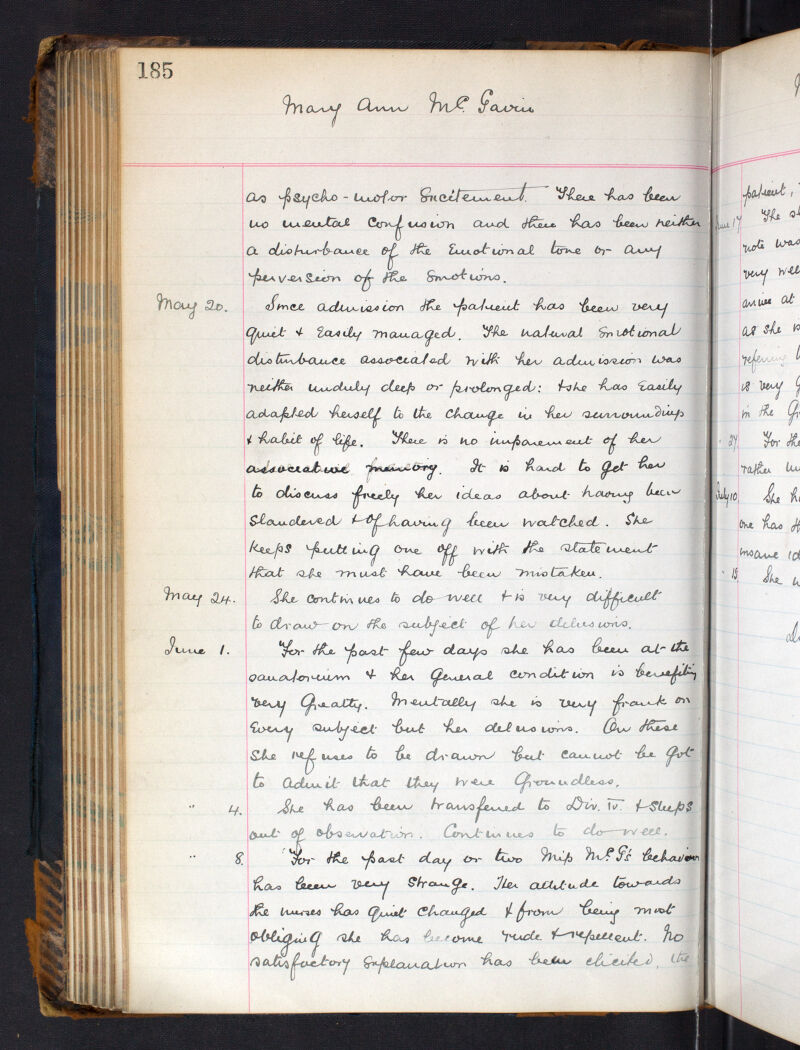 185
Mary Ann McGavin
as psycho-motor Excitement. There has been
no mental Confusion and there has been neither
a disturbance of the Emotional tone or any
perversion of the Emotions.
May 20. Since admission the patient has been very
quiet & Easily managed. The natural Emotional
disturbance associated with her admission was
neither unduly deep or prolonged: & she has Easily
adapted herself to the Change in her surroundings
& habit of life. There is no imparement of her
associative memory. It is hard to get her
to discuss freely her ideas about having been
Slandered & of having been watched. She
Keeps putting one off with the statement
that she must have been mistaken.
May 24. She continues to do well & is very difficult
to draw on the subject of her delusions.
June 1. For the past few days she has been at the
sanatorium & her General condition is benefiting
very Greatly. Mentally she is very frank on
Every subject but her delusions. On these
She refuses to be drawn but cannot be got
to admit that they were Groundless.
" 4. She has been transferred to Div. IV. & sleeps
out of observation. Continues to do well.
" 8 For the past day or two Miss McG's behaviour
has been very strange. Her attitude towards
the nurses has quiet changed & from being most
obliging she has become rude & repellent. No
satisfactory Explanation has been elicited, the
patient,
June 17 The
note was
very well
at
as she
referring
is very
in the
" 27 For the
rather
July 10 She
one has
insane
" 13 She